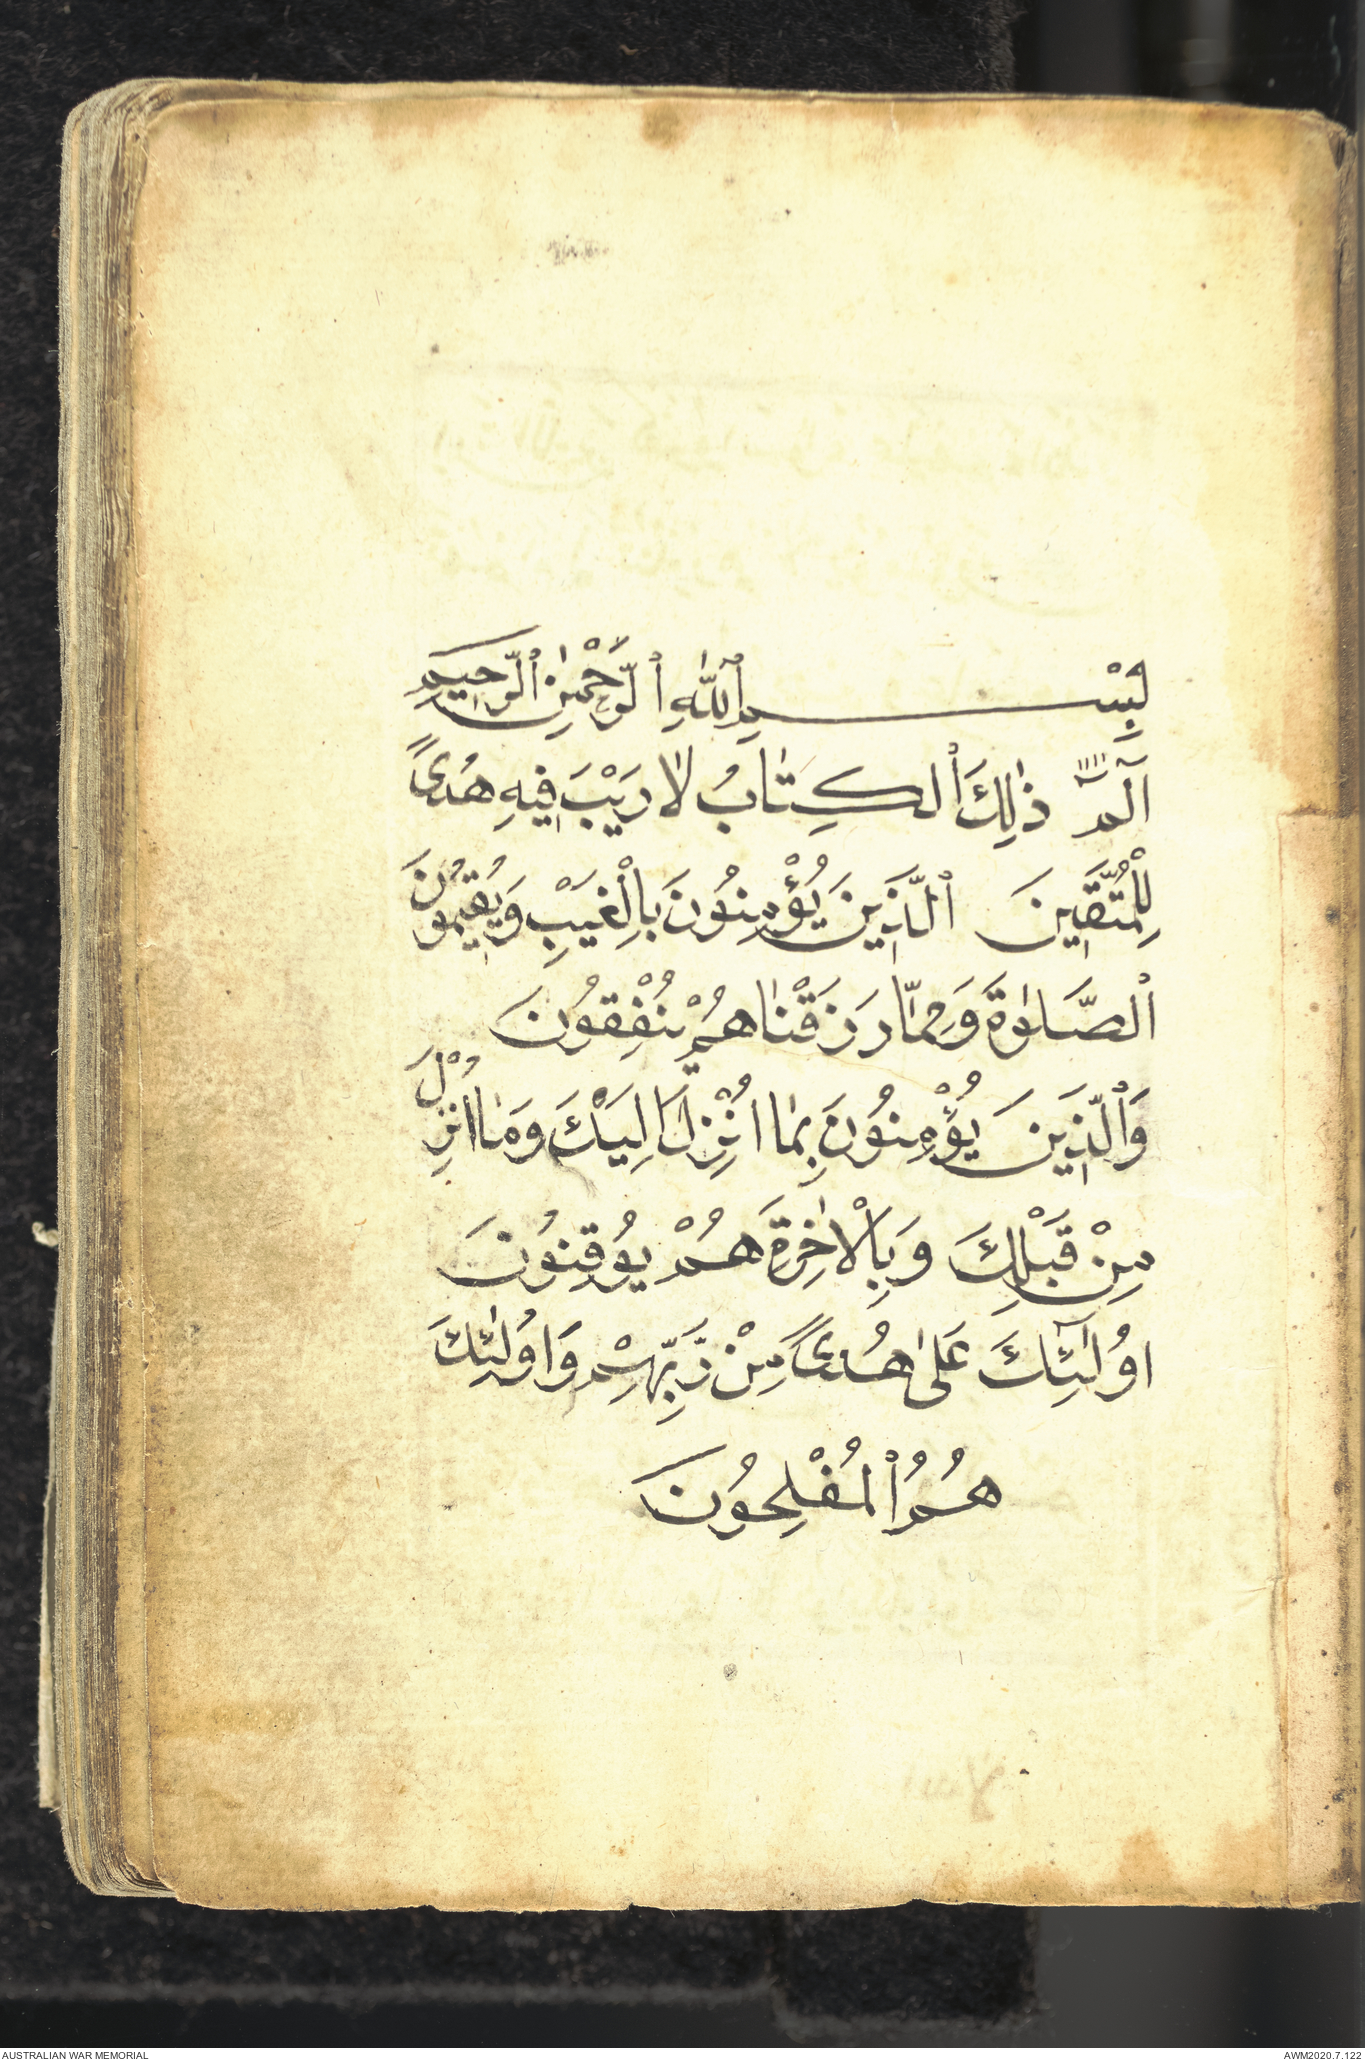 بِسْمِ ٱللّٰهِ ٱلرَّحْمٰنِ ٱلرَّحِيمِ
آلٓمّٓ ذٰلِكَ ٱلكِتٰابُ لٰا رَيْبَ فِيهِ هُدىً
لِلْمُتَّقِينَ ٱلَّذِينَ يُؤْمِنُونَ بِالْغَيْبِ وَيُقِيمُونَ
ٱلصَّلوٰةَ وَمِمّٰا رَزَقْنٰاهُمْ يُنْفِقُونَ
وَٱلَّذِينَ يُؤْمِنُونَ بِمٰا اُنْزِلَ اِلَيْكَ وَمٰا اُنْزِلَ
مِنْ قَبْلِكَ وَبِالْاٰخِرَةِ هُمْ يُوقِنُونَ
اوُلٰٓئِكَ عَلىٰ هُدىً مِنْ رَبِّهِمْ وَاوُلٰئِكَ
هُمُ ٱلْمُفْلِحُونَ
AUSTRALIAN WAR MEMORIAL AWM2020.7.122